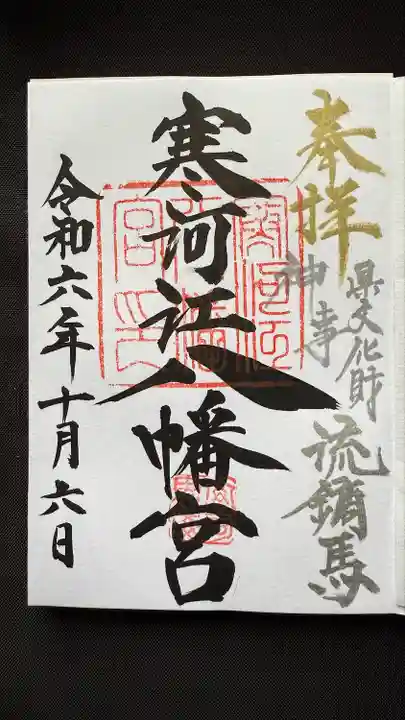 奉拝
県文化財
神事
流鏑馬
寒河江八幡宮
令和六年十月六日